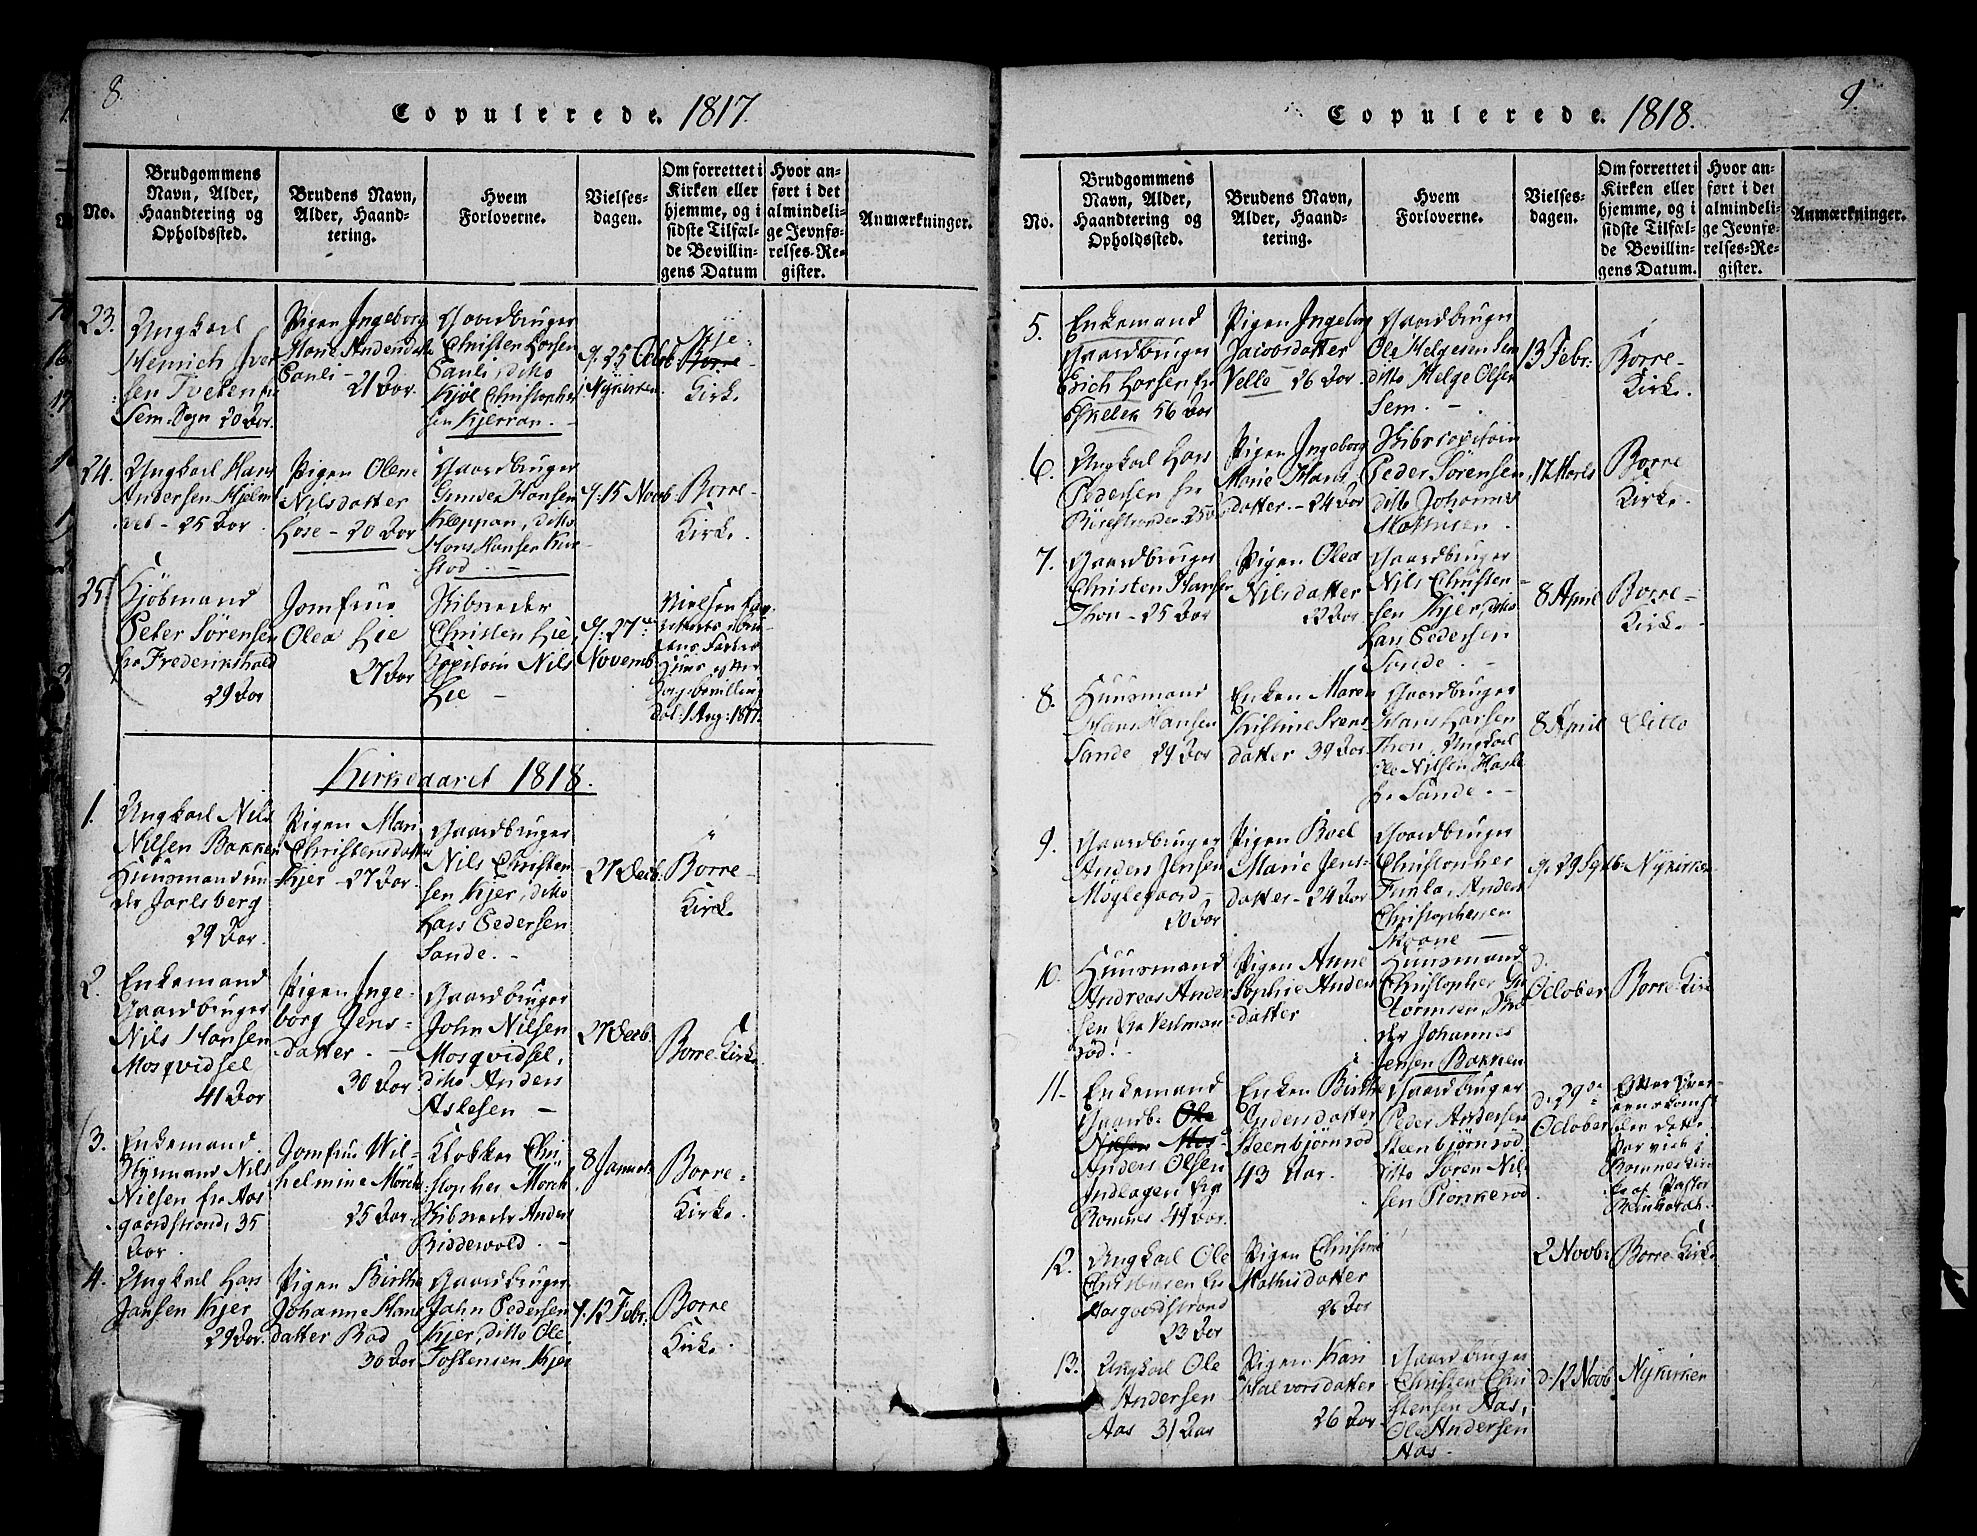 8.
Copulerede. 1817.
No.
Brudgommens
Navn, Alder,
Haandtering og
Opholdssted.
Brudens Navn,
Alder, Haand-
tering.
Hvem
Forloverne.
Vielses-
dagen.
Om forrettet i
Kirken eller
hjemme, og i
sidste Tilfæl-
de Bevillin-
gens Datum
Hvor an-
ført i det
almindeli-
ge Jevnfø-
relses-Re-
gister.
Anmærkninger.
23.
Ungkarl
Henrich Iver
sen Tveten fr
Sem Sogn 20 Aar.
Pigen Ingeborg
Marie Andersdatter
Pauli -
21 Aar.
Gaardbruger
Christen Larsen
Pauli, ditto
Kjøl Christopher
sen Kjerran. -
25 Octob
Nykirken
Nye-
Borre
Kirke
24.
Ungkarl Hans
Andersen Hjelm
ved - 25 Aar
Pigen Olene
Nilsdatter
Løse - 20 Aar
Gaardbruger
Gunder Hansen
Kleppan, ditto
Hans Hansen
15 Novb
Borre-
Kirke.
25
Kjöbmand
Peter Sørensen
fra Frederikshald
29 Aar
Jomfrue
Olea Lie
27 Aar
Skibsreder
Christen Lie,
Capitain Nils
Lie -
27de
Novemb
Kongebevilling
Dat. 1 Aug: 1817.
Kirkeaaret 1818.
1.
Ungkarl Nils
Nilsen Bakken
Huusmand un
der Jarlsberg
29 Aar.
Pigen Maren
Christensdatter
Kjer - 27 Aar
Gaardbruger
Nils Christen
sen Kjer, ditto
Lars Pedersen
Sande. -
27 Decb.
Borre-
Kirke
2.
Enkemand
Gaardbruger
Nils Hansen
Mosqvidsel
41 Aar
Pigen Inge-
borg Jens-
datter. -
30 Aar
Gaardbruger
John Nilsen
Mosqvidsel,
ditto Anders
Aslesen -
27 Decb.
Borre Kirke
3.
Enkemand
Styrmand Nils
Nilsen fra Aas
gaardstrand, 35
Aar.
Jomfrue Wil-
helmine Mörch
25 Aar.
Klokker Chri
stopher Mörch
Skibsreder Anders
Riddervold. -
8 Januar
Borre-
Kirke.
4.
Ungkarl Lars
Jansen Kjer
29 Aar.
Pigen Birthe
Johanne Hans
datter Rød
30 Aar
Gaardbruger
Jahn Pedersen
Kjer, ditto Ole
Tostensen Kjer
12 Febr.
Borre
Kirke.
9.
Copulerede. 1818.
No.
Brudgommens
Navn, Alder,
Haandtering og
Opholdssted.
Brudens Navn,
Alder, Haand-
tering.
Hvem
Forloverne.
Vielses-
dagen.
Om forrettet i
Kirken eller
hjemme, og i
sidste Tilfæl-
de Bevillin-
gens Datum.
Hvor an-
ført i det
almindeli-
ge Jevnfø-
relses-Re-
gister.
Anmærkninger.
5.
Enkemand
Gaardbruger
Erich Larsen fra
56 Aar
Pigen Ingeborg
Jacobsdatter
Velle - 26 Aar
Gaardbruger
Ole Helgesen Sem
ditto Helge Olsen
Sem. -
13 Febr.
Borre-
Kirke.
6.
Ungkarl Lars
Pedersen fra
Pigen Ingeborg
Marie Hans
datter. - 24 Aar
Skibscapitain
Peder Sörensen
ditto Johannes
Mathisen.
17 Marts
Borre
Kirke.
7.
Gaardbruger
Christen Hansen
Thon - 25 Aar
Pigen Olea
Nilsdatter
22 Aar.
Gaardbruger
Nils Christen-
sen Kjer, ditto
Lars Pedersen
Sande. -
8 April
Borre-
Kirke.
8.
Huusmand
Hans Hansen
Sande 29 Aar
Enken Maren
Kristine Svens
datter 39 Aar
Gaardbruger
Hans Larsen
Thon, Ungkarl
Ole Nilsen
fr Sande. -
8 April
Ditto
9.
Gaardbruger
Anders Jensen
Möglegaard -
20 Aar
Pigen Boel
Marie Jens-
datter - 24 Aar
Gaardbruger
Christopher
Anders
Christophersen
Skoane -
29 Sptb.
Nykirken
10.
Huusmand
Andreas Ander
sen fra
Pigen Anne
Sophie Anders
datter
Huusmand
Christopher
Johannes
Jensen Bakken
d.
October
Borre Kirke
11.
Enkemand
Gaardb: Ole
Nilsen Mos
Anders Olsen
Indlagen fra
Ramnes 44 Aar.
Enken Birthe
Andersdatter
Steenbjörnröd
43 Aar.
Gaardbruger
Peder Andersen
Steenbjörnröd
ditto Sören Nil
sen
d. 29de
October
Efter Over-
eenskomst
blev dette
Par viet i
Ramnes Kir
ke af Pastor
12.
Ungkarl Ole
Christensen fra
Aasgaardstrand
23 Aar
Pigen Christine
Mathisdatter
26 Aar
2 Novb:
Borre Kirke
13.
Ungkarl Ole
Andersen
Aas 31 Aar
Pigen Kari
Halvorsdatter
26 Aar
Gaardbruger
Christen Chri
stensen Aas,
Ole Andersen
Aas -
d. 12 Novb
Nykirken